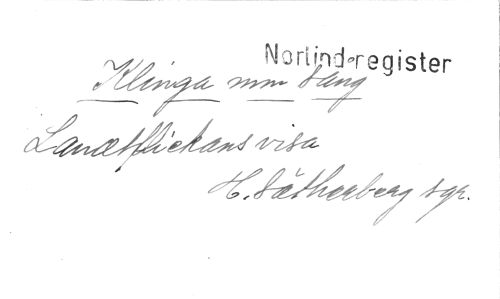 Norlind-register
Klinga min sång
Landtflickans visa
H. Sätherberg sgr.